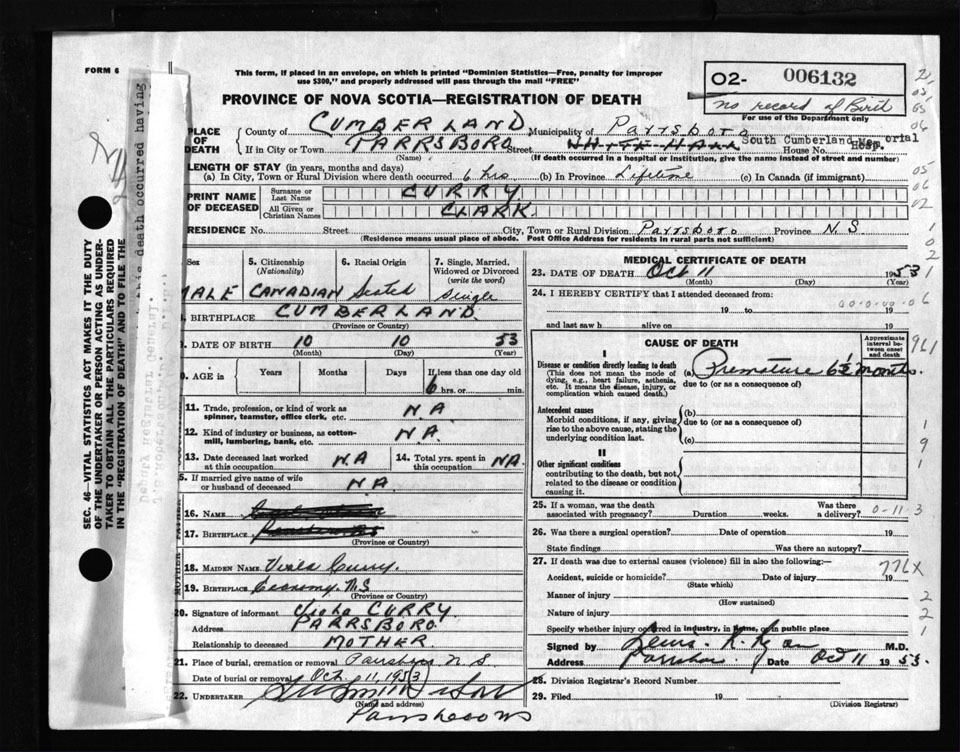 FORM 6
This form, if placed in an envelope, on which is printed "Dominion Statistics—Free, penalty for improper
use $300," and properly addressed will pass through the mail "FREE"
O2- 006132
no record of Birth
For use of the Department only
PROVINCE OF NOVA SCOTIA—REGISTRATION OF DEATH
PLACE OF DEATH
County of CUMBERLAND Municipality of Parrsboro
If in City or Town PARRSBORO Street South Cumberland Memorial Hosp. House No.
(Name) (If death occurred in a hospital or institution, give the name instead of street and number)
LENGTH OF STAY (in years, months and days)
(a) In City, Town or Rural Division where death occurred 6 hrs (b) In Province Lifetime (c) In Canada (if immigrant)
PRINT NAME OF DECEASED
Surname or Last Name CURRY
All Given or Christian Names CLARK
RESIDENCE No. Street City, Town or Rural Division Parrsboro Province N.S
(Residence means usual place of abode. Post Office Address for residents in rural parts not sufficient)
Sex MALE
5. Citizenship (Nationality) CANADIAN
6. Racial Origin Scotch
7. Single, Married, Widowed or Divorced (write the word) Single
BIRTHPLACE CUMBERLAND
(Province or Country)
DATE OF BIRTH 10 10 53
(Month) (Day) (Year)
AGE in Years Months Days If less than one day old
6 hrs. or min.
11. Trade, profession, or kind of work as spinner, teamster, office clerk, etc. N A
12. Kind of industry or business, as cotton-mill, lumbering, bank, etc. N A
13. Date deceased last worked at this occupation N A
14. Total yrs. spent in this occupation NA
5. If married give name of wife or husband of deceased N A
FATHER
16. NAME
17. BIRTHPLACE
(Province or Country)
MOTHER
18. MAIDEN NAME Viola Curry
19. BIRTHPLACE Economy N.S
(Province or Country)
20. Signature of informant Viola CURRY
Address PARRSBORO
Relationship to deceased MOTHER
21. Place of burial, cremation or removal Parrsboro N.S.
Date of burial or removal Oct. 11, 1953
22. UNDERTAKER
(Name and address)
Parrsboro NS
MEDICAL CERTIFICATE OF DEATH
23. DATE OF DEATH Oct 11 1953
(Month) (Day) (Year)
24. I HEREBY CERTIFY that I attended deceased from:
19 to 19
and last saw h alive on 19
CAUSE OF DEATH
Approximate interval between onset and death
I
Disease or condition directly leading to death (a) Premature 6½ months.
(This does not mean the mode of dying, e.g., heart failure, asthenia, etc. It means the disease, injury, or complication which caused death.)
due to (or as a consequence of)
Antecedent causes (b)
Morbid conditions, if any, giving rise to the above cause, stating the underlying condition last.
due to (or as a consequence of)
(c)
II
Other significant conditions
contributing to the death, but not related to the disease or condition causing it.
25. If a woman, was the death associated with pregnancy? Duration weeks. Was there a delivery? 0-11-3
26. Was there a surgical operation? Date of operation 19
State findings Was there an autopsy?
27. If death was due to external causes (violence) fill in also the following:—
776X
Accident, suicide or homicide? Date of injury 19
(State which)
Manner of injury
(How sustained)
Nature of injury
Specify whether injury occurred in industry, in home, or in public place
Signed by M.D.
Address Date Oct 11 1953.
28. Division Registrar's Record Number
29. Filed 19
(Division Registrar)
SEC. 46—VITAL STATISTICS ACT MAKES IT THE DUTY
OF THE UNDERTAKER OR PERSON ACTING AS UNDER-
TAKER TO OBTAIN ALL THE PARTICULARS REQUIRED
IN THE "REGISTRATION OF DEATH" AND TO FILE THE
this death occurred having
Deputy Registrar General.